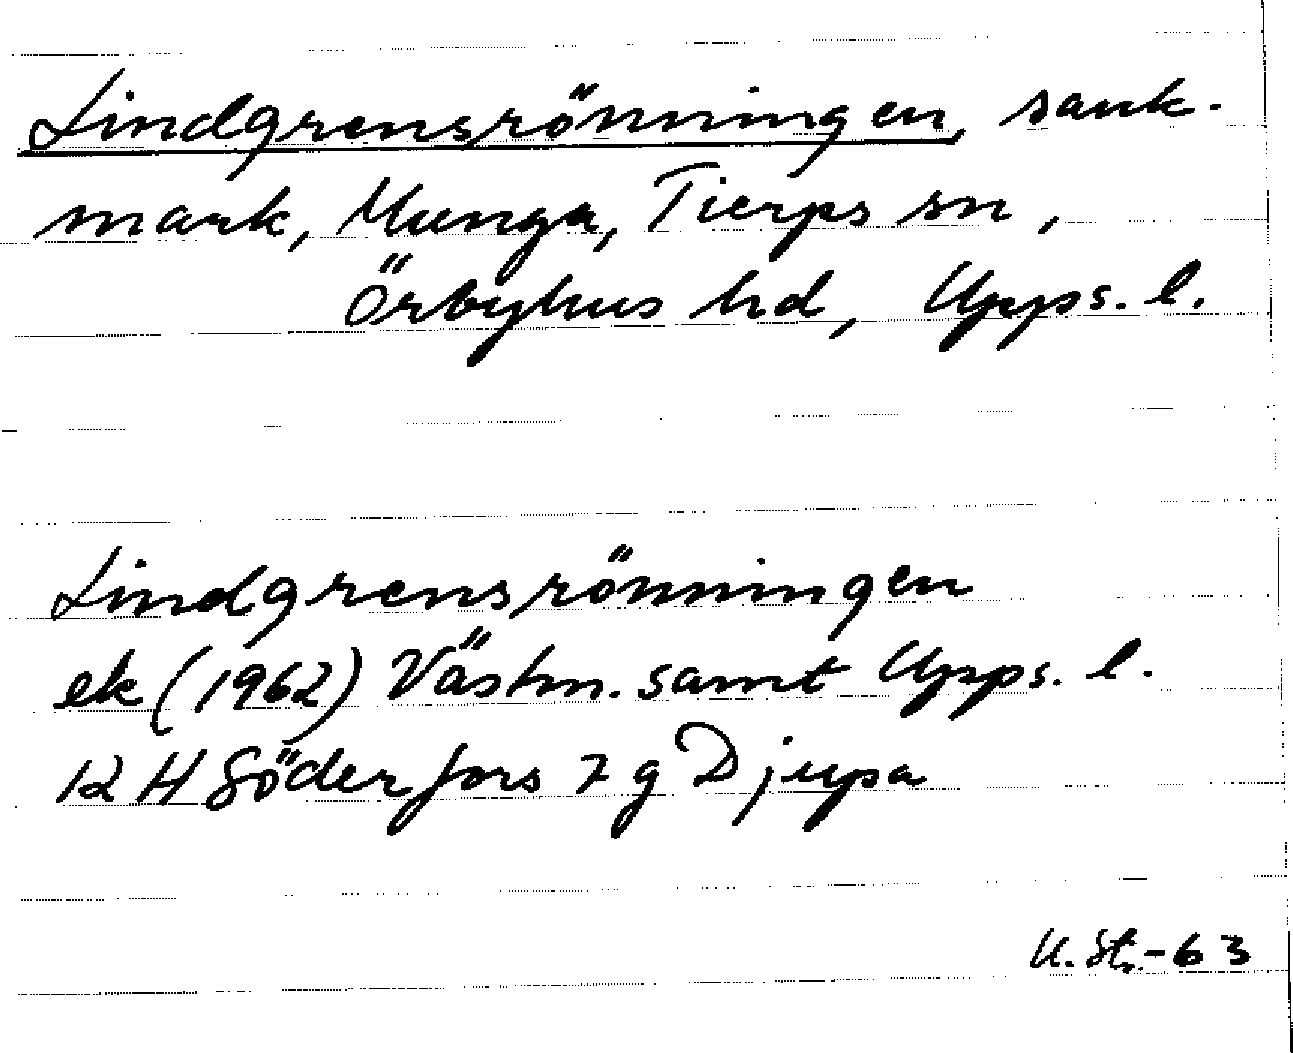 Lindgrensrönningen, sank-
mark, Munga, Tierps sn,
Örbyhus hd, Upps. l.
Lindgrensrönningen
ek (1962) Västm. samt Upps. l.
12 H Söderfors 7 g Djupa
U. St. -63